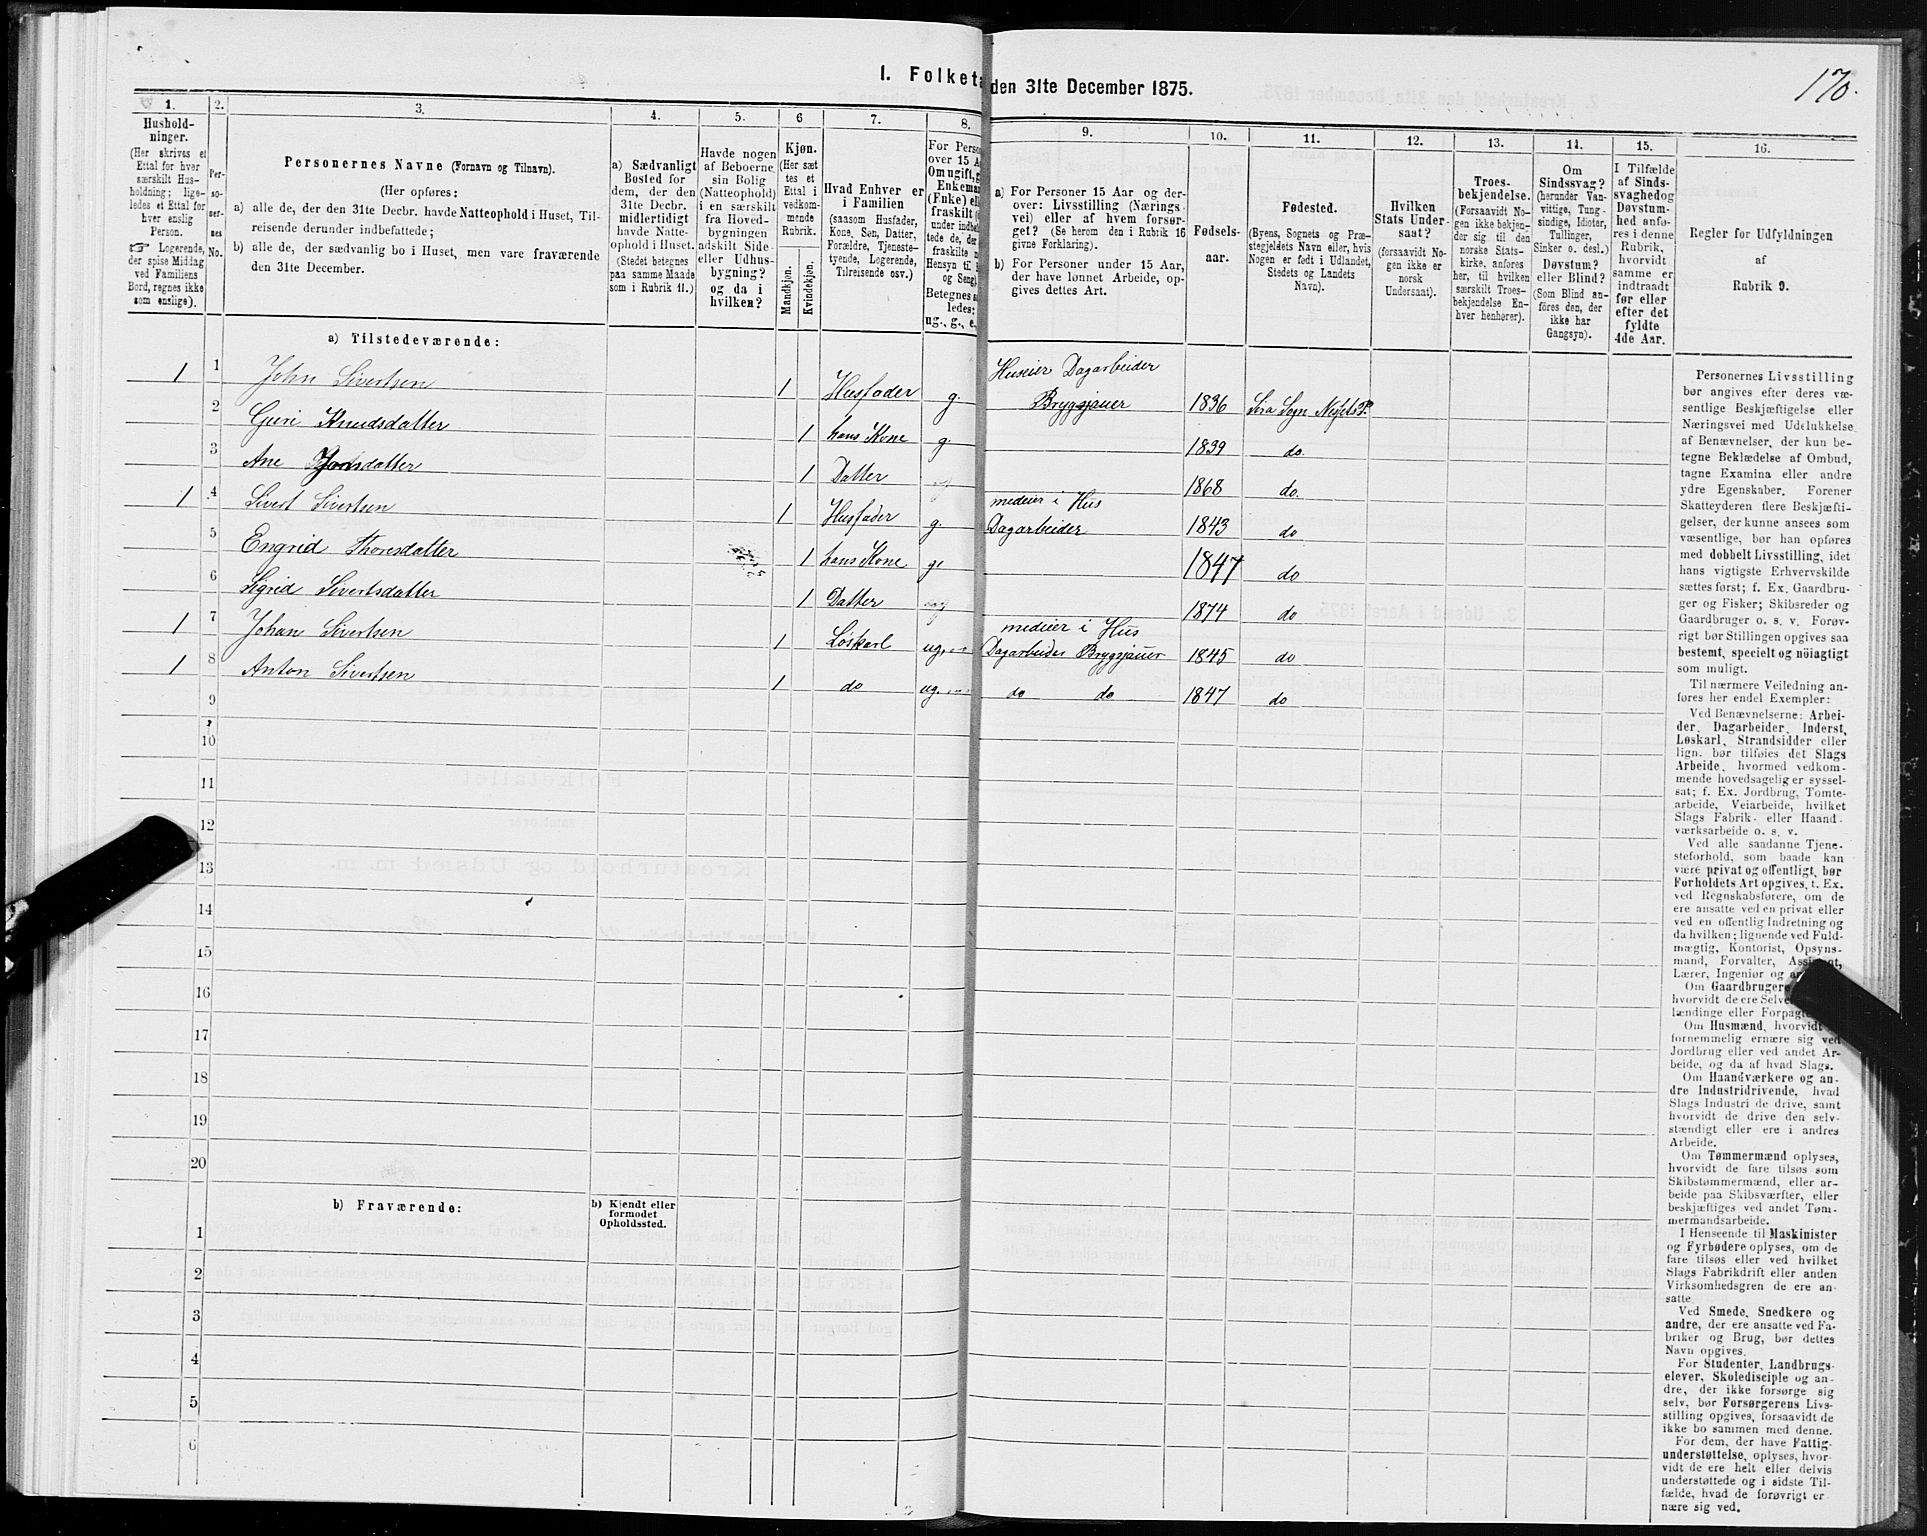 170.
1. Folketæ
den 31te December 1875.
1. 2. 3. 4. 5. 6 7. 8. 9. 10. 11. 12. 13. 14. 15. 16.
Hushold-
ninger.
(Her skrives et
Ettal for hver
særskilt Hus-
holdning; lige-
ledes et Ettal for
hver enslig
Person.
☞ Logerende,
der spise Middag
ved Familiens
Bord, regnes ikke
som enslige).
Per-
so-
ner-
nes
No.
Personernes Navne (Fornavn og Tilnavn).
(Her opføres:
a) alle de, der den 31te Decbr. havde Natteophold i Huset, Til-
reisende derunder indbefattede;
b) alle de, der sædvanlig bo i Huset, men vare fraværende
den 31te December.
a) Sædvanligt
Bosted for
dem, der den
31te Decbr.
midlertidigt
havde Natte-
ophold i Huset.
(Stedet betegnes
paa samme Maade
som i Rubrik 11.)
Havde nogen
af Beboerne
sin Bolig
(Natteophold)
i en særskilt
fra Hoved-
bygningen
adskilt Side-
eller Udhus-
bygning?
og da i
hvilken?
Kjøn.
(Her sæt
tes et
Ettal i
vedkom-
mende
Rubrik.
Mandkjøn.
Kvindekjøn.
Hvad Enhver er
i Familien
(saasom Husfader,
Kone, Søn, Datter,
Forældre, Tjeneste-
tyende, Logerende,
Tilreisende osv.)
For Perso
over 15 A
Om ugift, g
Enkeman
(Enke) ell
fraskilt (
under indbe
tede de, der
fraskilte
Hensyn til
og Seng)
Betegnes
ledes:
ug., g., e.
a) For Personer 15 Aar og der-
over: Livsstilling (Nærings-
vei) eller af hvem forsør-
get? (Se herom den i Rubrik 16
givne Forklaring).
b) For Personer under 15 Aar,
der have lønnet Arbeide, op-
gives dettes Art.
Fødsels-
aar.
Fødested.
(Byens, Sognets og Præ-
stegjeldets Navn eller, hvis
Nogen er født i Udlandet,
Stedets og Landets
Navn).
Hvilken
Stats Under-
saat?
(forsaavidt No-
gen ikke er
norsk
Undersaat).
Troes-
bekjendelse.
(Forsaavidt No-
gen ikke bekjen-
der sig til den
norske Stats-
kirke, anføres
her, til hvilken
særskilt Troes-
bekjendelse En-
hver henhører).
Om
Sindssvag?
(herunder Van-
vittige, Tung-
sindige, Idioter,
Tullinger,
Sinker o. desl.)
Døvstum?
eller Blind?
(Som Blind an-
føres den, der
ikke har
Gangsyn).
I Tilfælde
af Sinds-
svaghedog
Døvstum-
hed anfø-
res i denne
Rubrik,
hvorvidt
samme er
indtraadt
før eller
efter det
fyldte
4de Aar.
Regler for Udfyldningen
af
Rubrik 9.
a) Tilstedeværende:
1 1 John Sivertsen 1 Husfader g. Huseier Dagarbeider
Brygsjauer 1836 Sira Sogn Nesjets P.
2 Guri Knudsdatter 1 hans Kone g. 1839 do.
3 Ane Jonsdatter 1 Datter 1868 do.
1 4 Sivert Sivertsen 1 Husfader g. medeier i Hus
Dagarbeider 1843 do
5 Engrid Thoresdatter 1 hans Kone g. 1847 do
6 Sigrid Sivertsdatter 1 Datter 1874 do
1 7 Johan Sivertsen 1 Løskarl ug. medeier i Hus
Dagarbeider Brygsjauer 1845 do
1 8 Anton Sivertsen 1 do ug. do do 1847 do
9
10
11
12
13
14
15
16
17
18
19
20
b) Fraværende:
b) Kjendt eller
formodet
Opholdssted.
1
2
3
4
5
6
Personernes Livsstilling
bør angives efter deres væ-
sentlige Beskjæftigelse eller
Næringsvei med Udelukkelse
af Benævnelser, der kun be-
tegne Beklædelse af Ombud,
tagne Examina eller andre
ydre Egenskaber. Forener
Skatteyderen flere Beskjæfti-
gelser, der kunne ansees som
væsentlige, bør han opføres
med dobbelt Livsstilling, idet
hans vigtigste Erhvervskilde
sættes først; f. Ex. Gaardbru-
ger og Fisker; Skibsreder og
Gaardbruger o. s. v. Forøv-
rigt bør Stillingen opgives saa
bestemt, specielt og nöiagtigt
som muligt.
Til nærmere Veiledning an-
føres her endel Exempler:
Ved Benævnelserne: Arbei-
der, Dagarbeider, Inderst,
Løskarl, Strandsidder eller
lign. bør tilføies det Slags
Arbeide, hvormed vedkom-
mende hovedsagelig er syssel-
sat; f. Ex. Jordbrug, Tomte-
arbeide, Veiarbeide, hvilket
Slags Fabrik- eller Haand-
værksarbeide o. s. v.
Ved alle saadanne Tjene-
steforhold, som baade kan
være privat og offentligt, bør
Forholdets Art opgives, t. Ex.
ved Regnskabsførere, om de
ere ansatte ved en privat eller
ved en offentlig Indretning og
da hvilken; lignende ved Fuld-
mægtig, Kontorist, Opsyns-
mand, Forvalter, Assistent,
Lærer, Ingeniør og
Om Gaardbrugere
hvorvidt de ere Selve
lændinge eller Forpagt
Om Husmænd, hvorvidt
fornemmelig ernære sig ved
Jordbrug eller ved andet Ar-
beide, og da af hvad Slags.
Om Haandværkere og an-
dre Industridrivende, hvad
Slags Industri de drive, samt
hvorvidt de drive den selv-
stændigt eller ere i andres
Arbeide.
Om Tømmermænd oplyses,
hvorvidt de fare tilsøs som
Skibstømmermænd, eller ar-
beide paa Skibsværfter, eller
beskjæftiges ved andet Tøm-
mermandsarbeide.
I Henseende til Maskinister
og Fyrbødere oplyses, om de
fare tilsøs eller ved hvilket
Slags Fabrikdrift eller anden
Virksomhedsgren de ere an-
satte.
Ved Smede, Snedkere og
andre, der ere ansatte ved Fa-
briker og Brug, bør dettes
Navn opgives.
For Studenter, Landbrugs-
elever, Skoledisciple og an-
dre, der ikke forsørge sig
selv, bør Forsørgerens Livs-
stilling opgives, forsaavidt de
ikke bo sammen med denne.
For dem, der have Fattig-
understøttelse, oplyses, hvor-
vidt de ere helt eller delvis
understøttede og i sidste Til-
fælde, hvad de forøvrigt er-
nære sig ved.